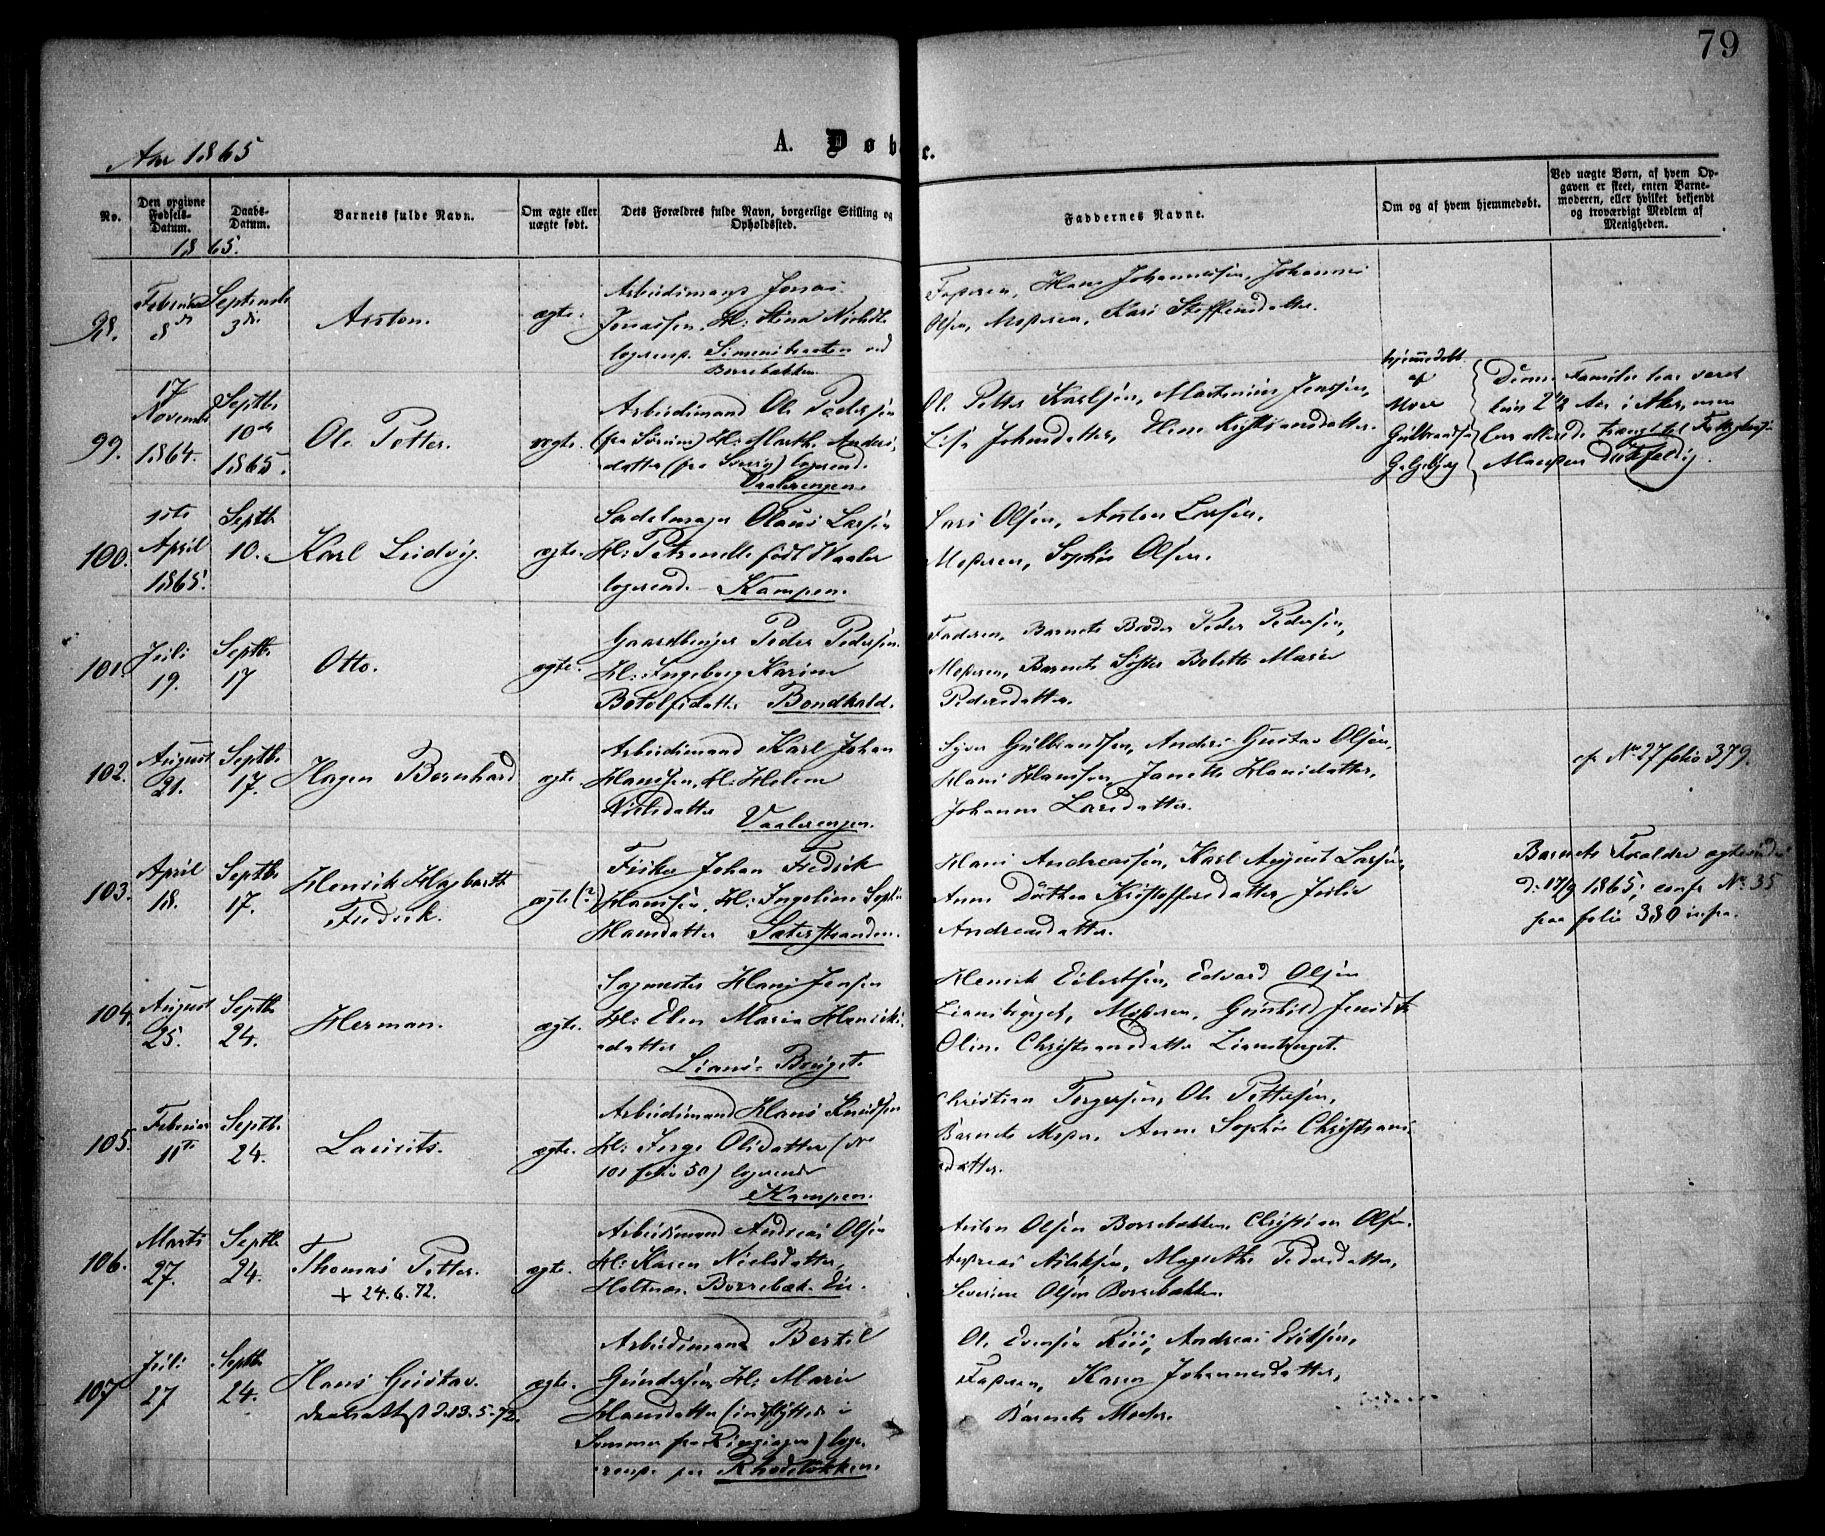 79
Aar 1865
A. Døbte.
No.
Den opgivne Fødsels-Datum.
Daabs-Datum.
Barnets fulde Navn.
Om ægte eller uægte født.
Dets Forældres fulde Navn, borgerlige Stilling og Opholdssted.
Faddernes Navne.
Om og af hvem hjemmedøbt.
Ved uægte Børn, af hvem Opgaven er skeet, enten Barnemoderen, eller hvilket bekjendt og troværdigt Medlem af Menigheden.
1865.
98.
Februar 8de
Septembr 3die
Anton.
ægte.
Arbeidsmand Jonas
Jonassen, H: Stina Nielsdt.
logerend. Simensbraaten ved
Borrebækken
Faderen, Hans Johannessen, Johannes
Olsen, Moderen, Kari Steffensdatter.
99.
17 November 1864.
Septbr 10de 1865.
Ole Petter.
ægte.
Arbeidsmand Ole Pedersen
(fra Sørum) H: Marthe Anders-
datter (fra ) logerend.
Vaalerengen.
Ole Petter Karlsen, Martinius Jensen,
Lisa Johnsdatter, Elene Kristiansdatter.
hjemmedøbt
af
Moer
Gulbrandsen
Galgebjerg
Denne Familie har været
kun 2½ Aar i Aker, men
har allerede trængt til Fattighjelp
Manden drikfældig.
100.
1ste April 1865.
Septbr 10.
Karl Ludvig.
ægte.
Sadelmager Olaus Larsen
H: Petronelle født Waaler
logerend. Kampen.
Lars Olsen, Anton Larsen,
Moderen, Sophie Olsen.
101.
Juli 19.
Septbr. 17
Otto.
ægte.
Gaardbruger Peder Pedersen.
H: Ingeborg Karine
Botolfsdatter Bondkald.
Faderen, Barnets Broder Peder Pedersen,
Moderen, Barnets Søster Bolette Marie
Pedersdatter.
102.
August 21.
Septbr. 17.
Hagen Bernhard
ægte.
Arbeidsmand Karl Johan
Hanssen, H: Helene
Nielsdatter Vaalerengen.
Syver Gulbrandsen, Anders Gustav Olsen,
Hans Hanssen, Janette Hansdatter,
Johanne Larsdatter.
cfr No 27 folio 379.
103.
April 18.
Septbr. 17.
Henrik Hagbarth
Fredrik.
ægte (?)
Fisker Johan Fredrik
Hanssen, H: Ingeline Sophie
Hansdatter Sæterstranden.
Hans Andreassen, Karl August Larsen,
Anne Dorthea Kristoffersdatter, Julie
Andreasdatter.
Barnets Forældre ægteviede
d: 17/9 1865, confr No 35
paa folio 380 infra.
104.
August 25.
Septbr. 24.
Herman.
ægte.
Sagmester Hans Jensen
H: Elen Maria Henriks-
datter
Lians-Bruget.
Henrik Eilertsen, Edvard Olsen
Liansbruget, Moderen, Gunhild Jensdtr
Oline Christiansdatter Liansbruget.
105.
Februar 11te
Septbr. 24.
Laurits.
ægte.
Arbeidsmand Hans Knudsen
H: Inge Olsdatter (No
101 folio 50) logerende
Kampen.
Christian Torgersen, Ole Pettersen,
Barnets Moder, Anne Sophie Christians-
datter.
106.
Marts 27.
Septbr 24.
Thomas Petter.
+ 24.6.72.
ægte.
Arbeidsmand Andreas Olsen
H: Karen Nielsdatter,
Holtnæs. Borrebæk. Eie.
Anton Olsen Borrebækken, Christian Olsen.
Andreas , Magrethe Pedersdatter,
Severine Olsen Borrebækken.
107
Juli 27
Septbr. 24.
Hans Gustav.
daabsattest d. 13.5.72.
ægte.
Arbeidsmand Bertel
Gundersen, H: Marie
Hansdatter (indflyttede i
Sommer fra Ringsager) loge-
rende paa Rhodeløkken.
Ole Evensen Riis, Andreas Eriksen,
Faderen, Karen Johannesdatter,
Barnets Moder.